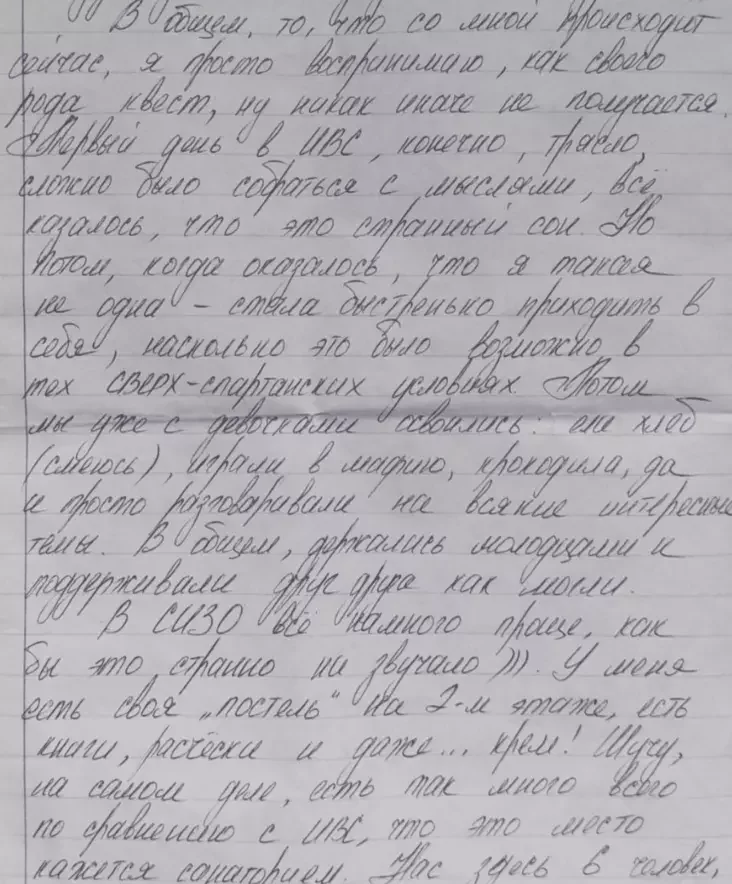 В общем, то, что со мной происходит
сейчас, я просто воспринимаю, как своего
рода квест, ну никак иначе не получается.
Первый день в ИВС, конечно, трясло,
сложно было собраться с мыслями, всё
казалось, что это странный сон. Но
потом, когда оказалось, что я такая
не одна – стала быстренько приходить в
себя, насколько это было возможно в
тех СВЕРХ-спартанских условиях. Потом
мы уже с девочками освоились: ели хлеб
(смеюсь), играли в мафию, крокодила, да
и просто разговаривали на всякие интересные
темы. В общем, держались молодцами и
поддерживали друг друга как могли.
В СИЗО всё намного проще, как
бы это странно ни звучало))). У меня
есть своя „постель“ на 2-м этаже, есть
книги, расчёски и даже... крем! Шучу,
на самом деле, есть так много всего
по сравнению с ИВС, что это место
кажется санаторием. Нас здесь 6 человек,